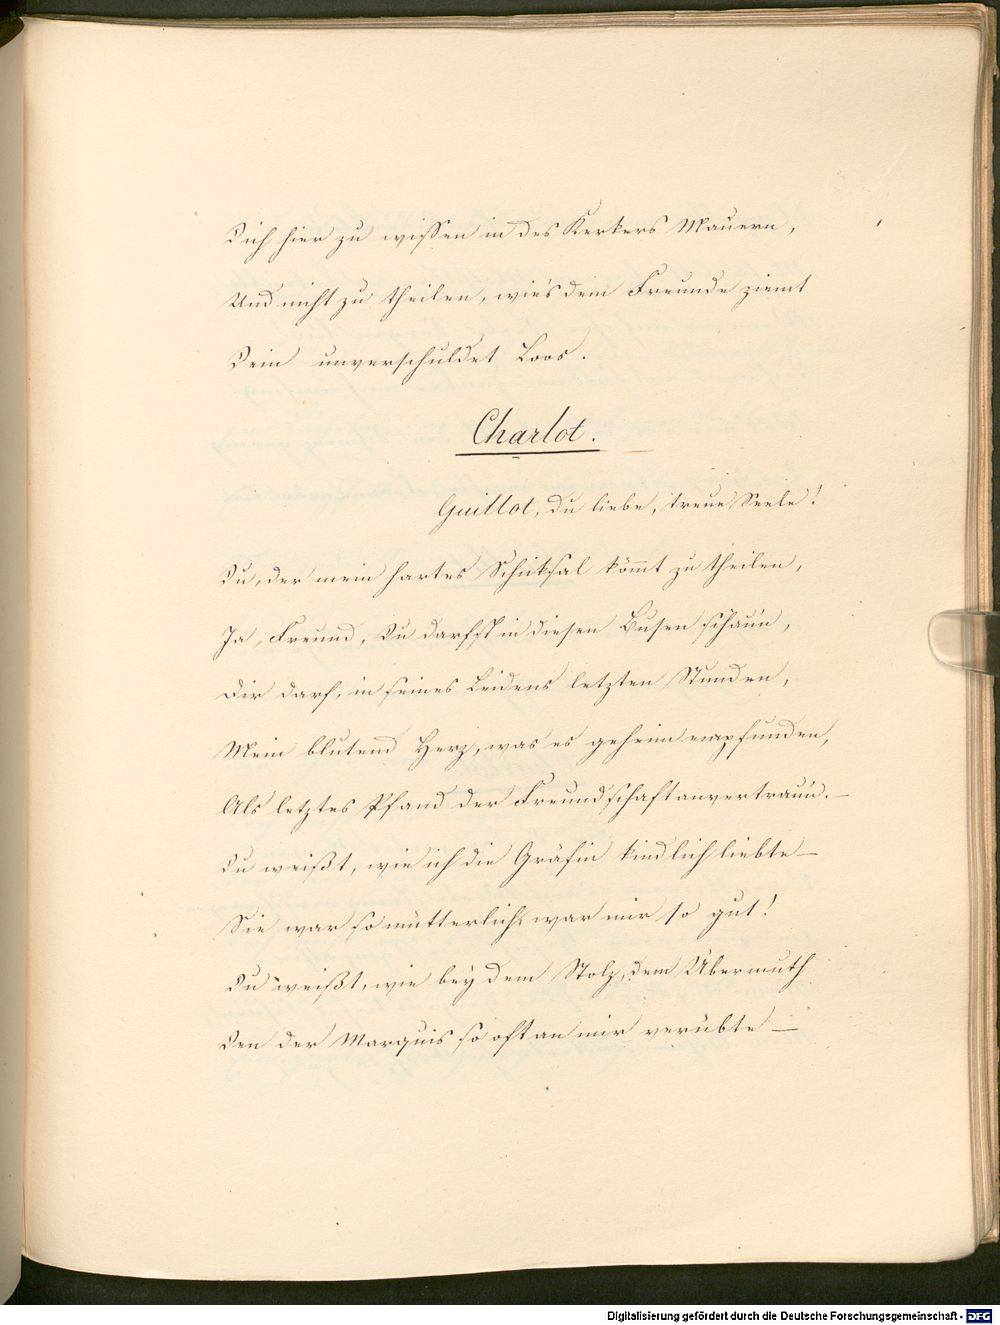 Dich hier zu wissen in des Kerkers Mauern,
Und nicht zu theilen, wie's dem Freunde ziemt
Dein unverschuldet Loos.
Charlot.
Guillot, Du liebe, treue Seele!
Du, der mein hartes Schicksal kömmt zu theilen,
Ja, Freund, Du darfst in diesen Busen schaun,
Dir darf, in seines Leidens letzten Stunden,
Mein blutend Herz, was es geheim empfunden,
Als letztes Pfand der Freundschaft anvertraun. —
Du weißt, wie ich die Gräfin kindlich liebte —
Sie war so mütterlich, war mir so gut!
Du weißt, wie bey dem Stolz, dem Übermuth
Den der Marquis so oft an mir verübte —
Digitalisierung gefördert durch die Deutsche Forschungsgemeinschaft - DFG